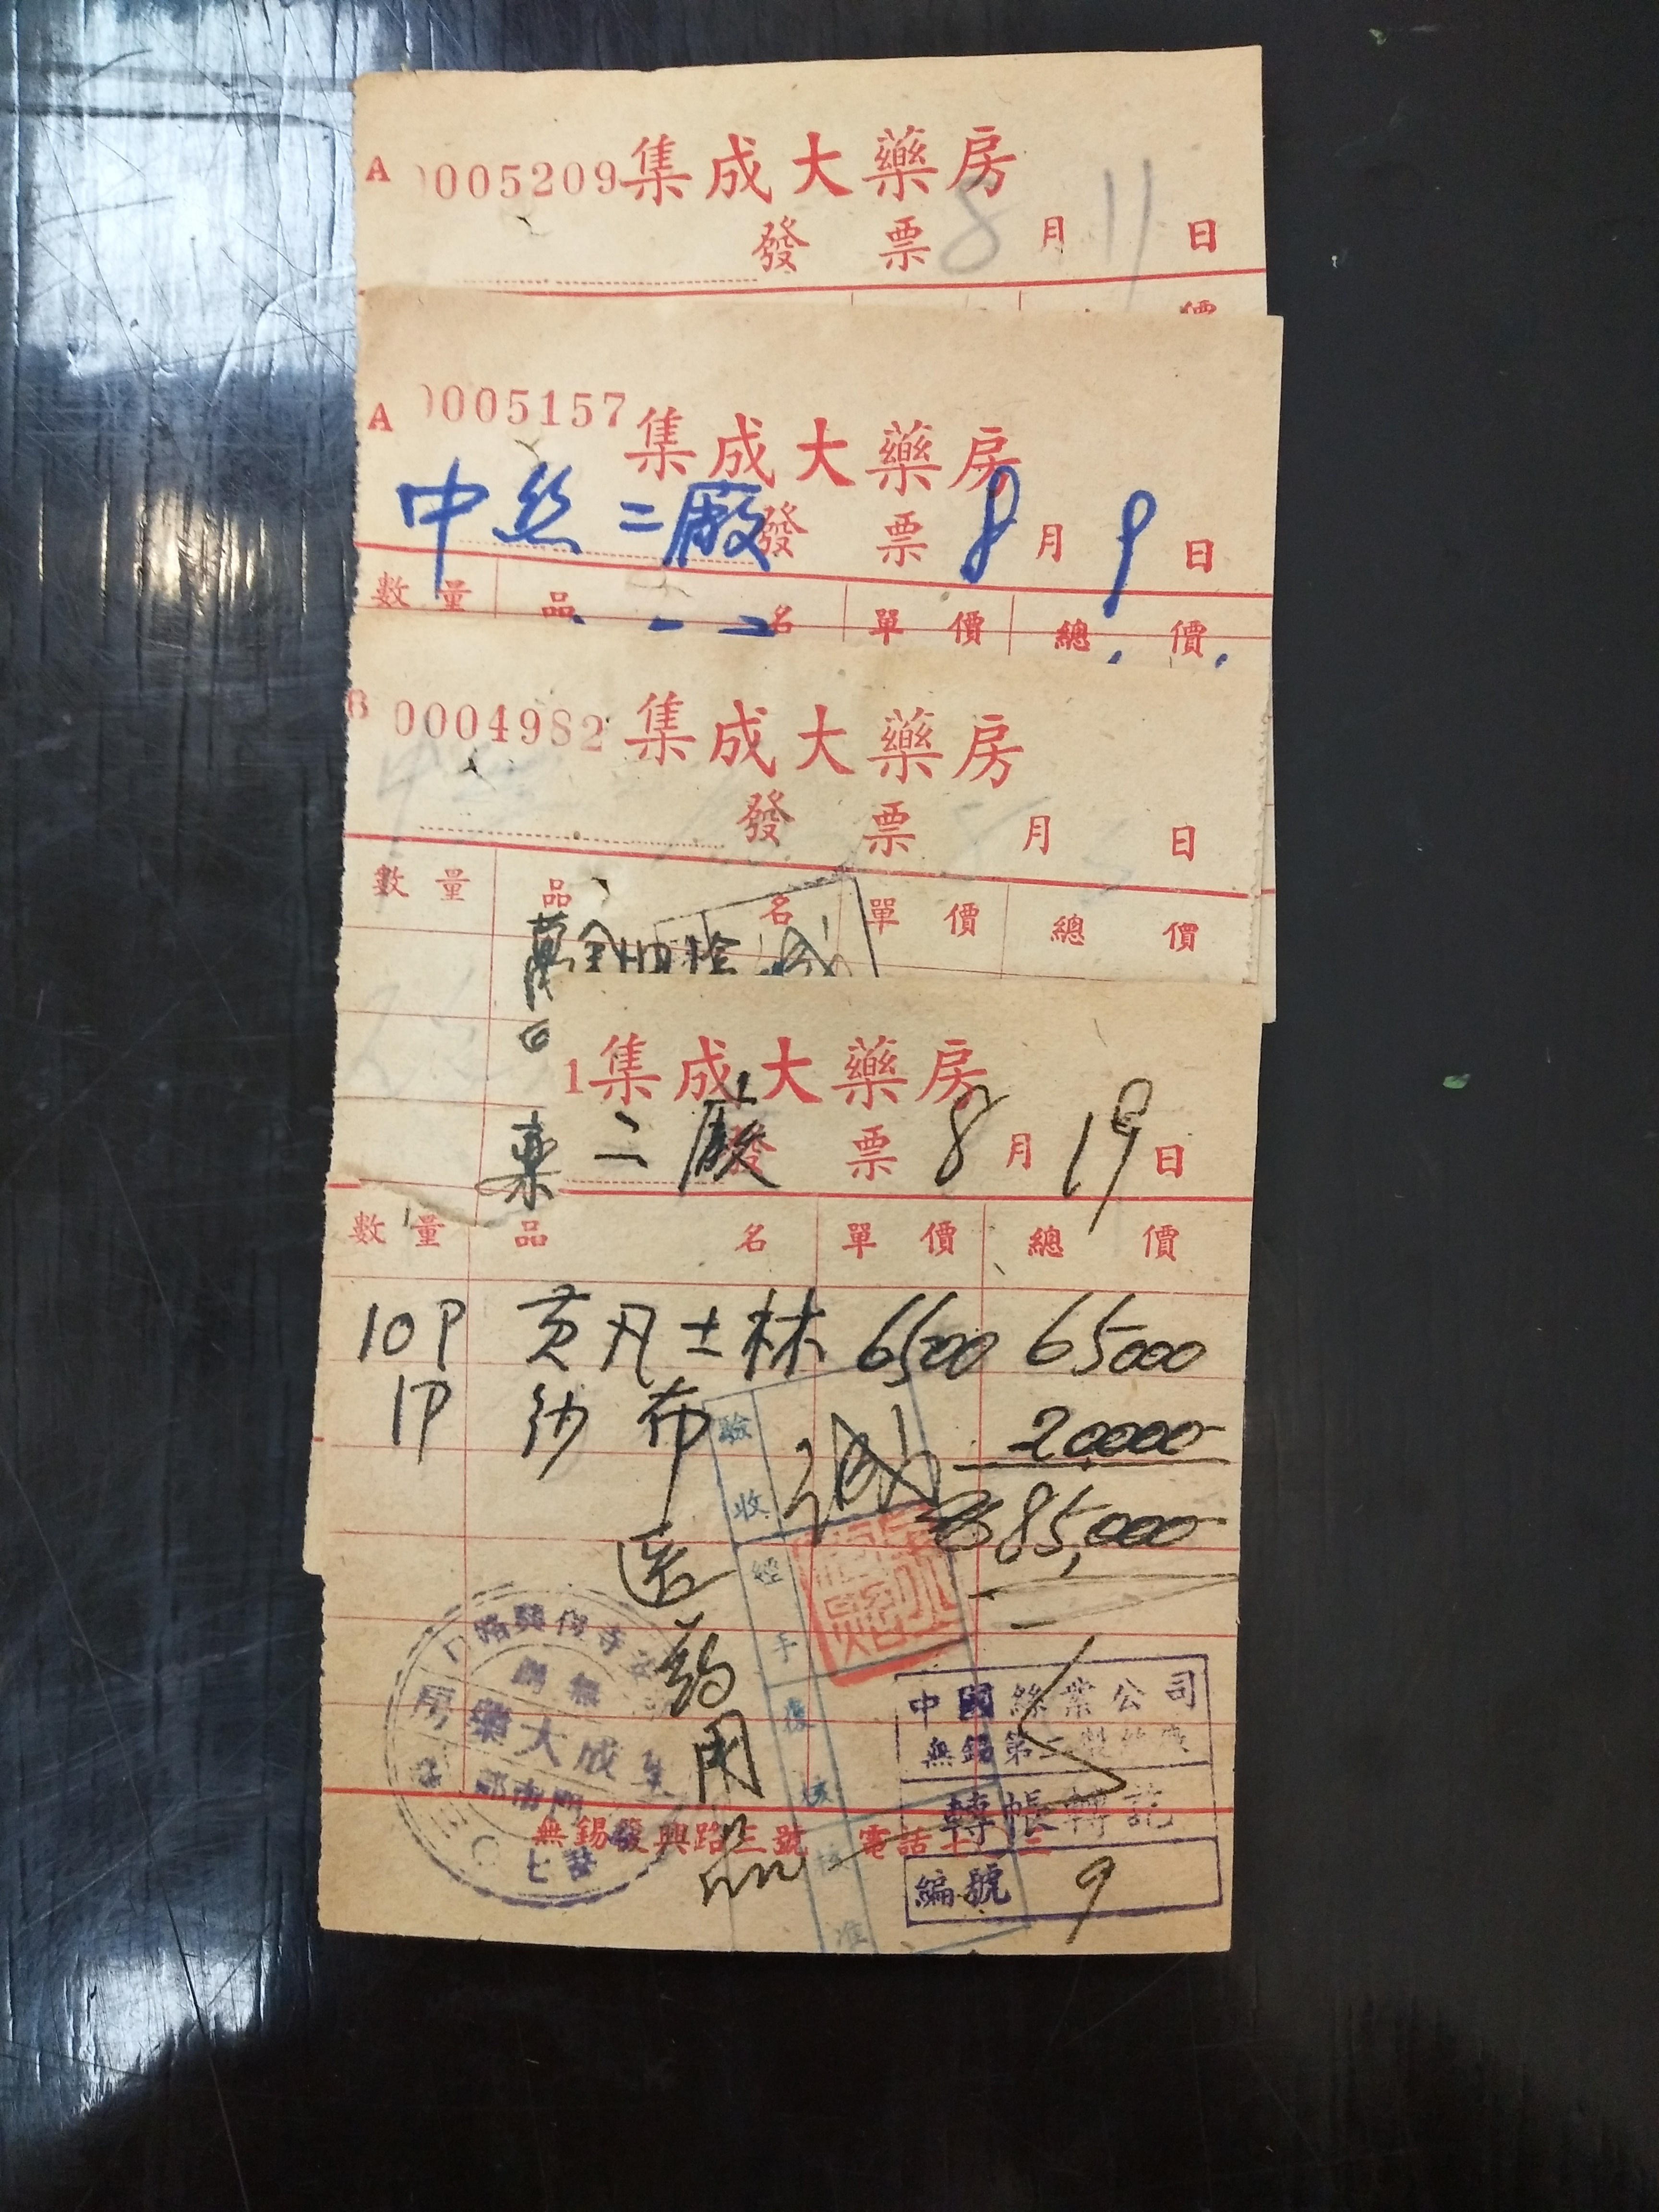 A 0005209 集成大藥房
發票 8月11日
價
A 0005157 集成大藥房
中丝二廠 發票 8月9日
數量 品名 單價 總價
B 0004982 集成大藥房
發票 月 日
數量 品名 單價 總價
萬金油
1 集成大藥房
二廠 發票 8月19日
數量 品名 單價 總價
10P 黄凡士林 6500 65000
1P 纱布 20,000
85,000
驗收
經手
復核
核准
医药用品
無錫
集成大藥房
門市部
中國絲業公司
無錫第二製絲廠
轉帳轉訖
編號 9
無錫發興路三號 電話